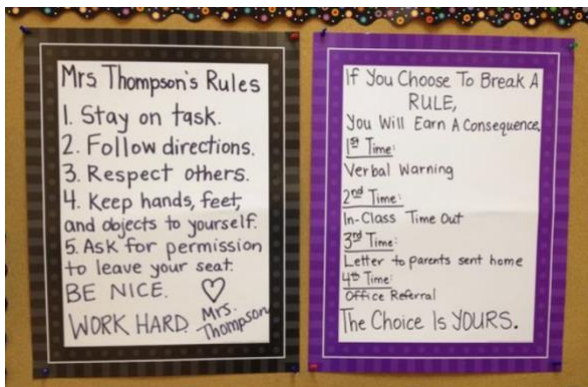 Mrs Thompson's Rules
1. Stay on task.
2. Follow directions.
3. Respect others.
4. Keep hands, feet,
and objects to yourself.
5. Ask for permission
to leave your seat.
BE NICE. ♡
WORK HARD. Mrs.
Thompson
If You Choose To Break A
RULE,
You Will Earn A Consequence.
1st Time:
Verbal Warning
2nd Time:
In-Class Time Out
3rd Time:
Letter to parents sent home
4th Time:
Office Referral
The Choice Is YOURS.